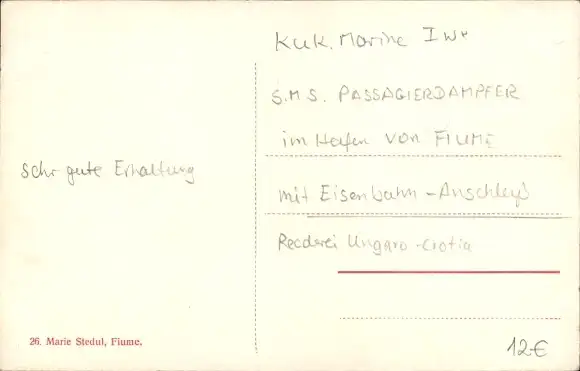 sehr gute Erhaltung
26. Marie Stedul, Fiume.
KuK. Marine I WK
S.M.S. PASSAGIERDAMPFER
im Hafen VON FIUME
mit Eisenbahn-Anschluß
Reederei Ungaro-Croatia
12€